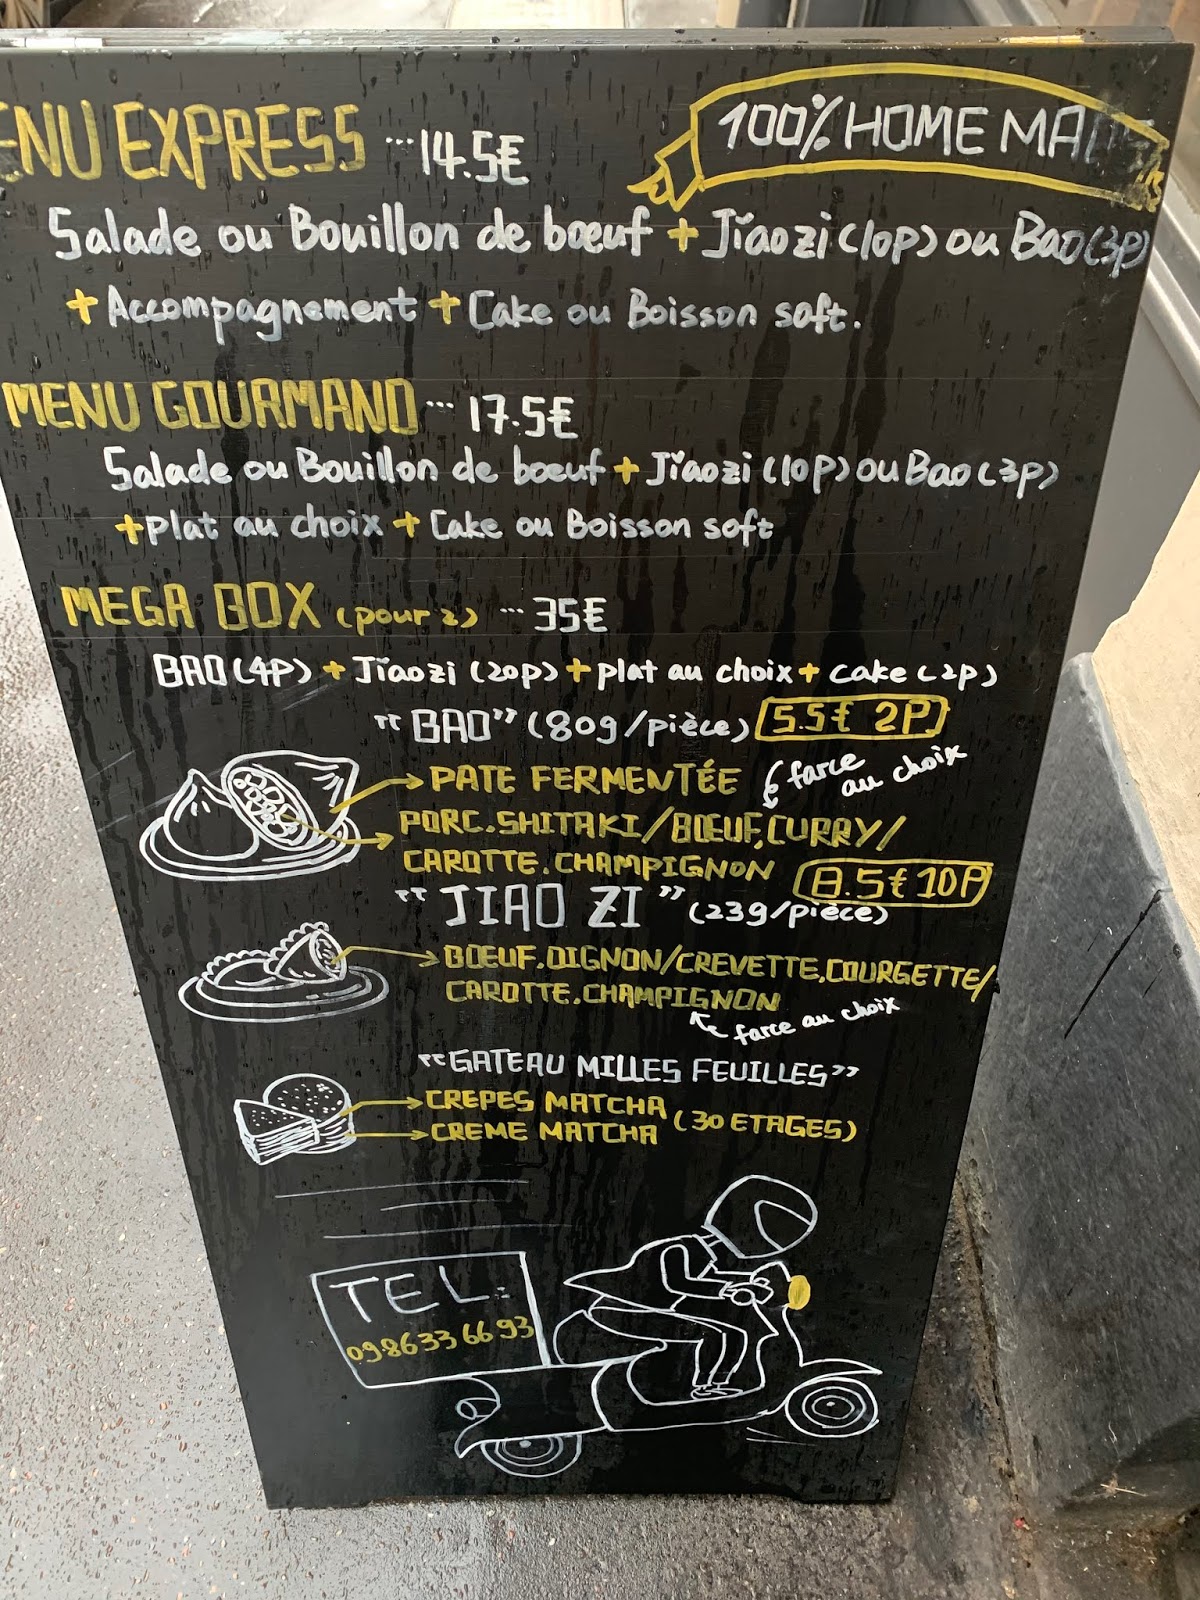 ENU EXPRESS ... 14.5€
100% HOME MADE
Salade ou Bouillon de bœuf + Jǐaozi (10P) ou Bao (3P)
+ Accompagnement + Cake ou Boisson soft.
MENU GOURMAND ... 17.5€
Salade ou Bouillon de bœuf + Jǐaozi (10P) ou Bao (3P)
+ Plat au choix + Cake ou Boisson soft
MEGA BOX (pour 2) ... 35€
BAO (4P) + Jǐaozi (20p) + plat au choix + cake (2p)
"BAO" (80g/pièce) 5.5€ 2P
PATE FERMENTÉE
farce au choix
PORC.SHITAKI/BŒUF,CURRY/
CAROTTE.CHAMPIGNON
8.5€ 10P
"JIAO ZI" (23g/pièce)
BŒUF.OIGNON/CREVETTE,COURGETTE/
CAROTTE.CHAMPIGNON
farce au choix
"GATEAU MILLES FEUILLES"
CREPES MATCHA (30 ETAGES)
CREME MATCHA
TEL:
09 86 33 66 93